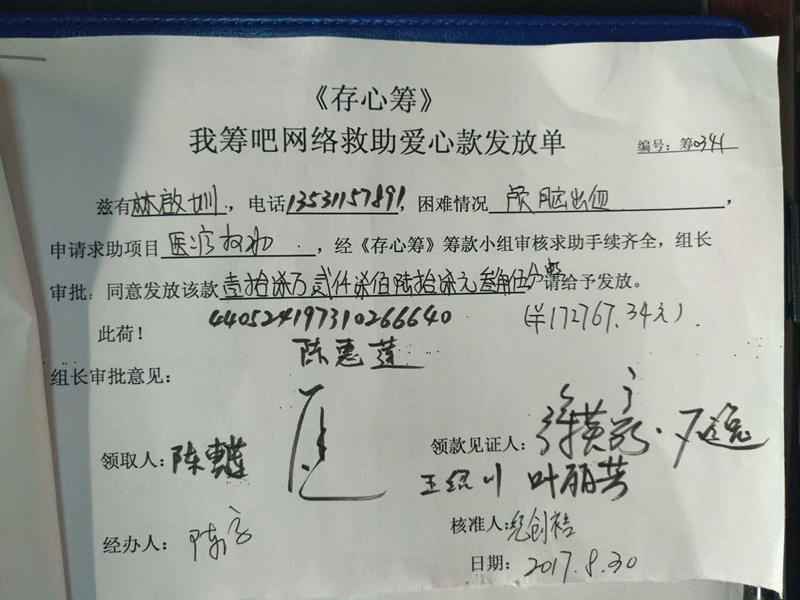 《存心筹》
我筹吧网络救助爱心款发放单
编号：筹0341
兹有林啟训，电话13531157891，困难情况 颅脑出血，
申请求助项目 医疗救助，经《存心筹》筹款小组审核求助手续齐全，组长
审批，同意发放该款壹拾柒万贰仟柒佰陆拾柒元叁角伍分整请给予发放。
此荷！
440524197310266640
(¥172767.34元)
陈惠莲
组长审批意见：
领取人：陈惠莲
领款见证人：
王绍川 叶丽芸
核准人：
经办人：陈
日期：2017.8.30